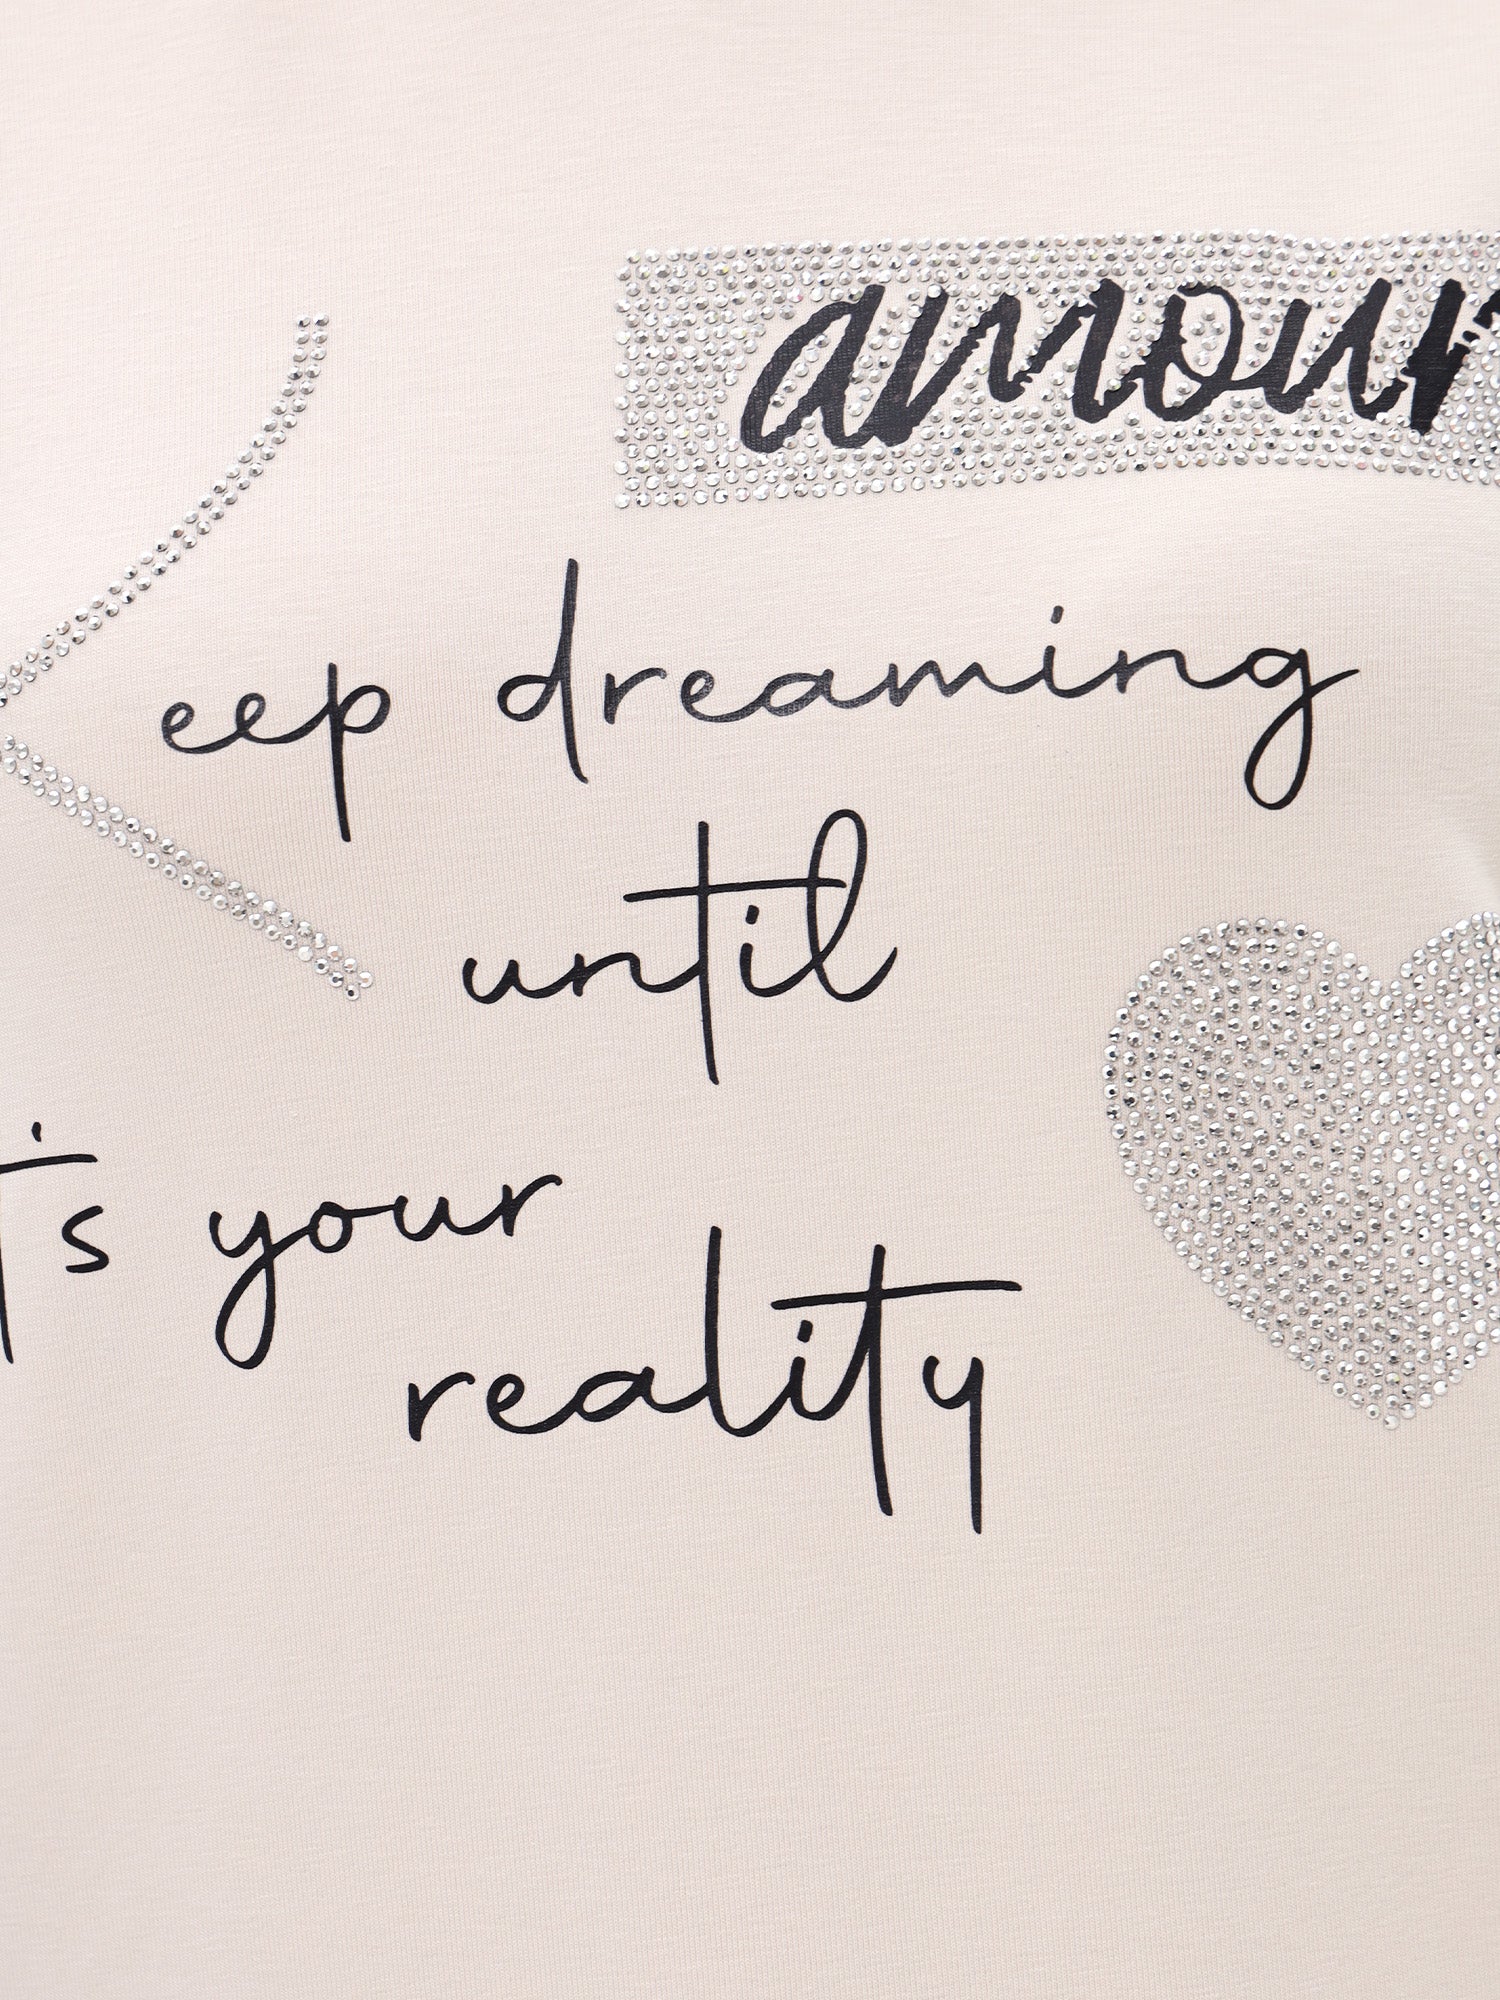 amour
eep dreaming
until
t's your
reality